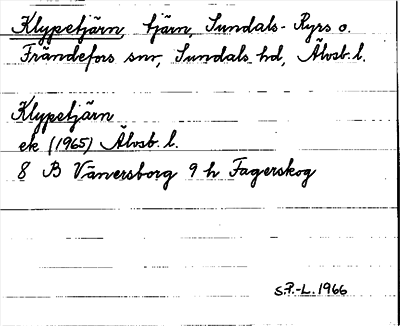 Klypetjärn, tjärn, Sundals-Ryrs o.
Frändefors snr, Sundals hd, Älvsb. l.
Klypetjärn
ek (1965) Älvsb. l.
8 B Vänersborg 9 h Fagerskog
S.P.-L. 1966